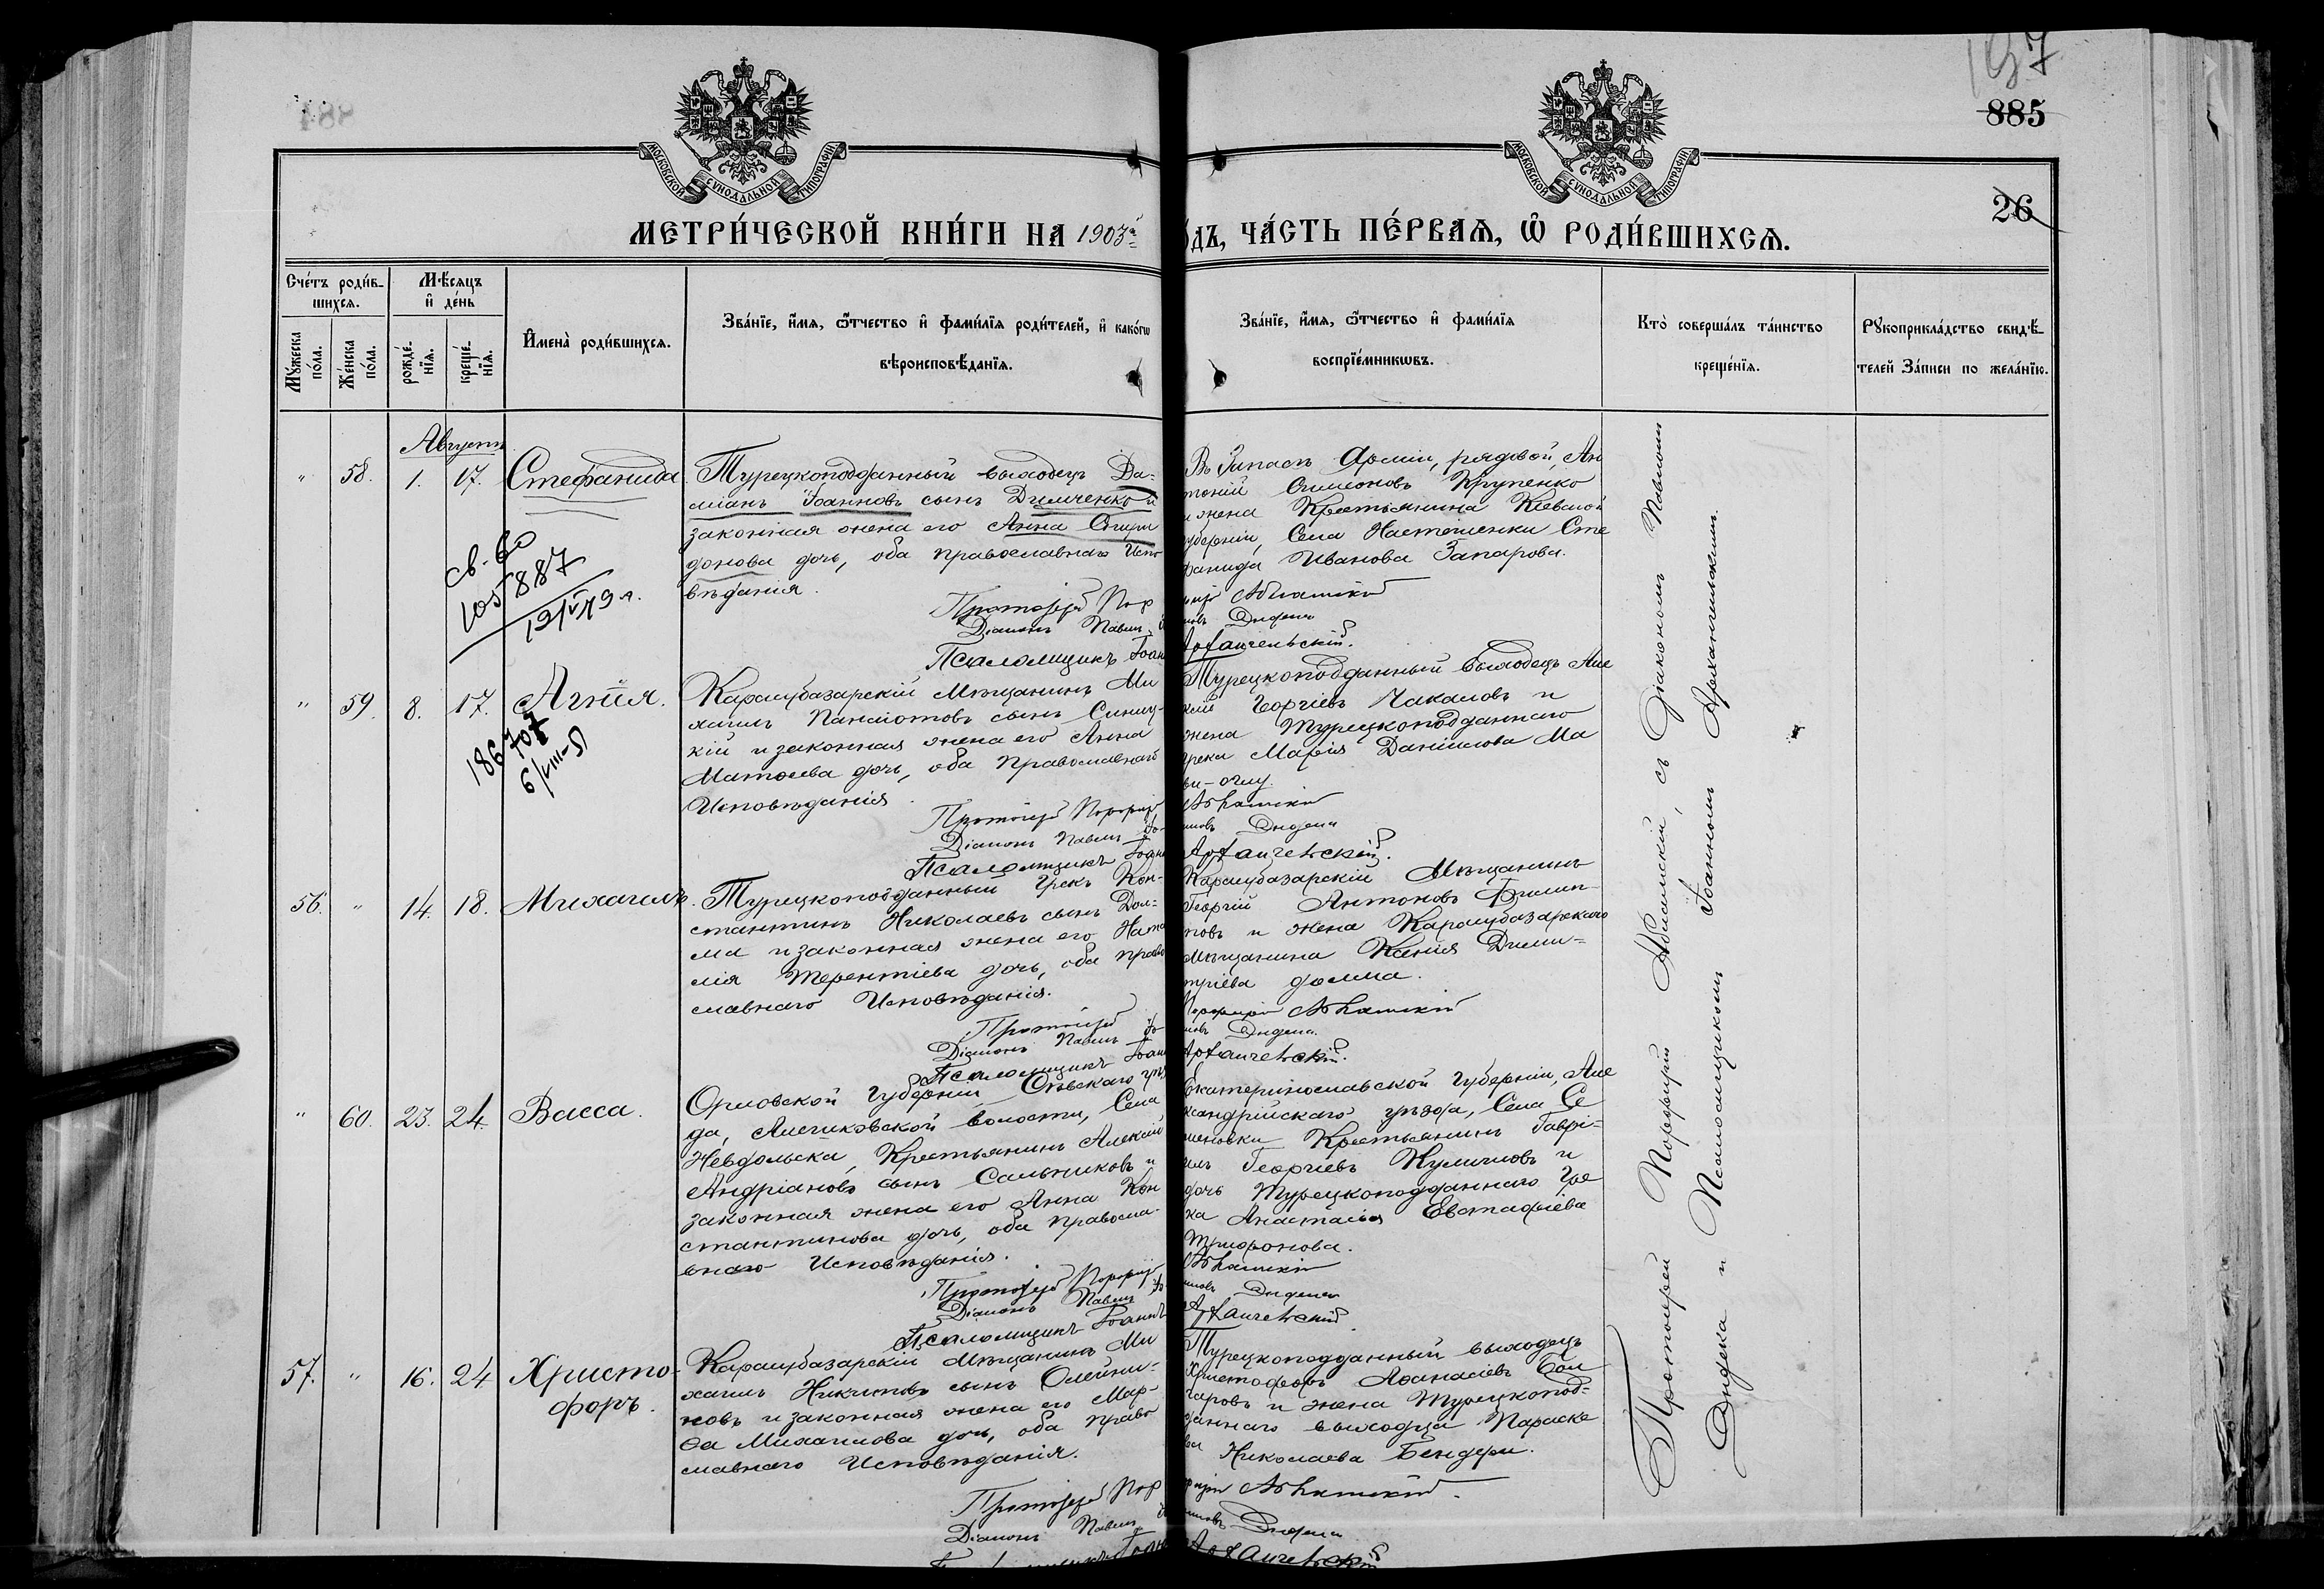 884
157
885
26
МОСКОВСКОЙ СѴНОДАЛЬНОЙ ТИПОГРАФІИ
МОСКОВСКОЙ СѴНОДАЛЬНОЙ ТИПОГРАФІИ
МЕТРИ́ЧЕСКОЙ КНИ́ГИ НА 1903й
о́дъ, ЧА́СТЬ ПЕ́РВАѦ, Ѿ РОДИ́ВШИХСѦ.
Сче́тъ роди́в-
шихсѧ.
Мꙋ́жеска
по́ла.
Же́нска
по́ла.
Мѣ́сѧцъ
и҆ де́нь
рожде́-
нїѧ.
креще́-
нїѧ.
И҆мена̀ роди́вшихсѧ.
Зва́нїе, и҆́мѧ, ѻ҆́тчество и҆ фами́лїѧ роди́телей, и҆ како́гѡ
вѣроисповѣ́данїѧ.
Зва́нїе, и҆́мѧ, ѻ҆́тчество и҆ фами́лїѧ
воспрїе́мникѡвъ.
Кто̀ соверша́лъ та́инство
креще́нїѧ.
Рꙋкоприкла́дство свидѣ́-
телей За́писи по жела́нїю.
Августъ
" 58. 1. 17. Стефанида
Турецкоподданный выходецъ Да-
міанъ Іоанновъ сынъ Димченко и
законная жена его Анна Спири
донова дочь, оба православнаго Испо
вѣданія.
Протоіерей Пор
Діаконъ Павелъ
Псаломщикъ Іоан
Въ Запасѣ Арміи, рядовой, Ан
тоній Симеоновъ Крупенко
и жена Крестьянина Кіевской
губерніи, Села Настошенки Сте
фанида Иванова Запарова.
Діденко
Архангельскій.
св-во
105887
" 59. 8. 17. Агнія.
Карасубазарскій Мѣщанинъ Ми
хаилъ Панаіотовъ сынъ Синиц-
кій и законная жена его Анна
Матвеева дочь, оба православнаго
Исповѣданія.
Протоіерей Порфирій
Діаконъ Павелъ
Псаломщикъ Іоан
Турецкоподданный выходецъ Але
ксій Георгіевъ Чакаловъ и
жена Турецкоподданнаго
грека Марія Даніилова Ма
ви-оглу
Архангельскій.
186707
6/VIII-51
56. " 14. 18. Михаилъ.
Турецкоподданный Грекъ Кон-
стантинъ Николаевъ сынъ Дол-
ма и законная жена его Ната
лія Терентіева дочь, оба право
славнаго Исповѣданія.
Протоіерей
Діаконъ Павелъ
Псаломщикъ Іоан
Карасубазарскій Мѣщанинъ
Георгій Антоновъ Филип-
повъ и жена Карасубазарскаго
мѣщанина Ксенія Дими-
тріева долма.
Архангельскій.
" 60. 23. 24. Васса.
Орловской Губерніи Сѣвскаго уѣз
да, Алешковской волости, Села
Невдольска, Крестьянинъ Алексій
Андріановъ сынъ Сальниковъ и
законная жена его Анна Кон
стантинова дочь, оба правосла-
внаго Исповѣданія.
Протоіерей Порфирій
Діаконъ Павелъ
Псаломщикъ Іоаннъ
Екатеринославской Губерніи, Але
ксандрійскаго уѣзда, Села Се
меновки Крестьянинъ Гаврі-
илъ Георгіевъ Куличовъ и
дочь Турецкоподданнаго Гре
ка Анастасія Евстафіева
Трифонова.
Архангельскій
57. " 16. 24 Христо-
форъ.
Карасубазарскій Мѣщанинъ Ми
хаилъ Никитовъ сынъ Олейни-
ковъ и законная жена его Мар-
ѳа Михаилова дочь, оба право
славнаго Исповѣданія.
Протоіерей Пор
Діаконъ Павелъ
Турецкоподданный выходецъ
Христофоръ Аѳанасіевъ Бол
гаровъ и жена Турецкопод-
даннаго выходца Параске
ва Николаева Бендери.
Архангельскій
Протоіерей Порфирій съ Діакономъ Павломъ
и Псаломщикомъ Іоанномъ Архангельскимъ.